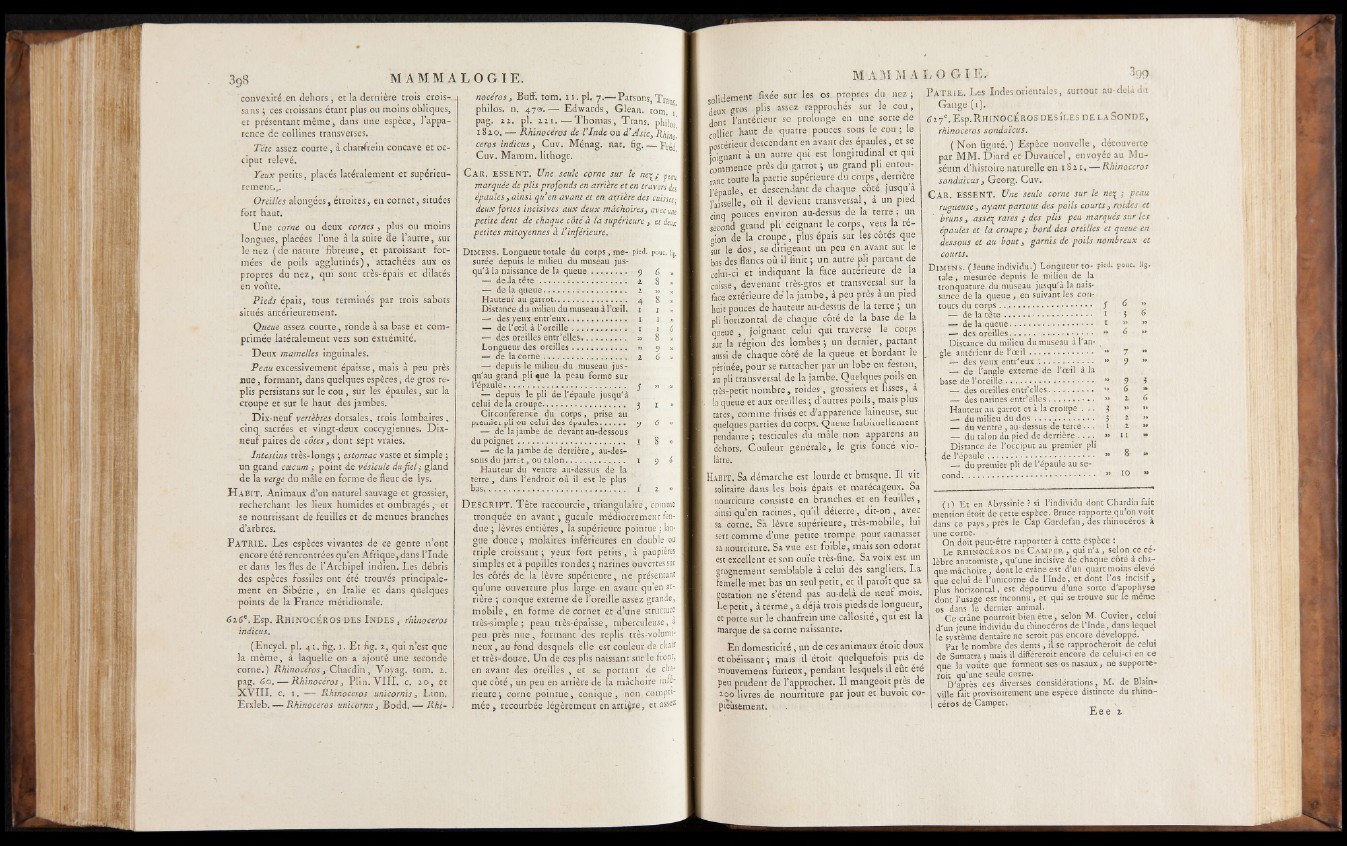 398 MAMMALOGIE.
convexité en dehors ; et la dernière trois crois-
sans ; ces croissans étant plus ou moins obliques,
et présentant même, dans une espèce, l'appa-
rence de collines transverses.
Tête assez courte, à chanfrein concave et oc-
ciput relevé.
Yeux petits, placés latéralement et supérieu-
rement.
Oreilles alongées, étroites, en cornet, situées
fort haut.
Une corne ou deux cornes, plus ou moins
longues, placées l'une à la suite de l'autre, sur
le nez (de nature fibreuse, et paroissant for-
mées de poils agglutinés), attachées aux os
propres du nez, qui sont très-épais et dilatés
en voûte.
Pieds épais, tous terminés par trois sabots
situés antérieurement.
Queue assez courte, ronde à sa base et com-
primée latéralement vers son extrémité.
Deux mamelles inguinales.
Peau excessivement épaisse, mais à peu près
nue, formant, dans quelques espèces, de gros re-
plis persistans sur le cou, sur les épaules, sur la
croupe et sur le haut des jambes.
Dix-neuf vertèbres dorsales, trois lombaires,
cinq sacrées et vingt-deux coccygiennes. Dix-
neuf paires de côtes, dont sept vraies.
Intestins très-longs ; estomac vaste et simple ;
un grand cœcum ; point de vésicule du fiel ; gland
de la verge du mâle en forme de fleur de lys.
HABIT. Animaux d'un naturel sauvage et grossier,
recherchant les lieux humides et ombragés, et
se nourrissant de feuilles et de menues branches
d'arbres.
PATRIE. Les espèces vivantes de ce genre n'ont
encore été rencontrées qu'en Afrique, dans l'Inde
et dans les îles de l'Archipel indien. Les débris
des espèces fossiles ont été trouvés principale-
ment en Sibérie, en Italie et dans quelques
points de la France méridionale.
626e. Esp. RHINOCÉROS DES INDES, rhinoceros
indicus.
(Encycl. pl. 41. fig. 1. Et fig. 2, qui n'est que
la même, à laquelle on a ajouté une seconde
corne.) Rhinocéros, Chardin, Voyag. tom. 2.
pag. 60. — Rhinocéros, Plin. VIII. c. 20, et
XVIII. c. 1. — Rhinoceros unicornis, Linn.
Erxleb. — Rhinoceros unicornu, Bodd. — Rhi-
nocéros, Buff. tom. 11. pl. 7. — Parsons, Trans.
philos. n. 470. — Edwards, Glean. tom. 1.
pag. 22. pl. 221. — Thomas, Trans. philos.
1820. — Rhinocéros de l'Inde ou d'Asie, Rhino-
ceros indicus, Cuv. Ménag. nat. fig. — Fréd.
Cuv. Mamm. lithogr.
CAR. ESSENT. Une seule corne sur le nez ; peau
marquée de plis profonds en arrière et en travers des
épaules, ainsi qu'en avant et en arrière des cuisses ;
deux fortes incisives aux deux mâchoires, avec une
petite dent de chaque côté à la supérieure, et deux
petites mitoyennes à l'inférieure.
DIMENS. Longueur totale du corps, me- pied. pouc. lig.
surée depuis le milieu du museau jus-
qu'à la naissance de la queue ........ 9 6 »
— de la tête ................ 2 8 »
— de la queue ................ 2 » »
Hauteur au garrot ................ 4 8 »
Distance du milieu du museau à l'œil. 1 1 »
— des yeux entr'eux ............ 1 1 »
— de l'œil à l'oreille ............ 1 1 6
— des oreilles entr'elles .......... » 8 »
Longueur des oreilles ............ » 9 »
— de la corne ................ 2 6 »
— depuis le milieu du museau jus-
qu'au grand pli que la peau forme sur
l'épaule ........................ 5 » »
— depuis le pli de l'épaule jusqu'à
celui de la croupe ................ 3 1 »
Circonférence du corps, prise au
premier pli ou celui des épaules ...... 9 6 »
— de la jambe de devant au-dessous
du poignet .................... 1 8 »
— de la jambe de derrière, au-des-
sous du jarret, ou talon ............ 1 9 6
Hauteur du ventre au-dessus de la
terre, dans l'endroit où il est le plus
bas ............................ 1 2 »
DESCRIPT. Tête raccourcie, triangulaire, comme
tronquée en avant ; gueule médiocrement fen-
due ; lèvres entières, la supérieure pointue ; lan-
gue douce ; molaires inférieures en double ou
triple croissant ; yeux fort petits, à paupières
simples et à pupilles rondes ; narines ouvertes sur
les côtés de la lèvre supérieure, ne présentant
qu'une ouverture plus large en avant qu'en ar-
rière ; conque externe de l'oreille assez grande,
mobile, en forme de cornet et d'une structure
très-simple ; peau très-épaisse, tuberculeuse, à
peu près nue, formant des replis très-volumi-
neux, au fond desquels elle est couleur de chair
et très-douce. Un de ces plis naissant sur le front,
en avant des oreilles, et se portant de cha-
que côté, un peu en arrière de la mâchoire infé-
rieure ; corne pointue, conique, non compri-
mée, recourbée légèrement en arrière, et assez
MAMMALOGIE. 399
solidement fixée sur les os propres du nez ;
deux gros plis assez rapprochés sur le cou,
dont l'antérieur se prolonge en une sorte de
collier haut de quatre pouces sous le cou ; le
postérieur descendant en avant des épaules, et se
joignant à un autre qui est longitudinal et qui
commence près du garrot ; un grand pli entou-
rant toute la partie supérieure du corps, derrière
l'épaule, et descendant de chaque côté jusqu'à
l'aisselle, où il devient transversal, à un pied
cinq pouces environ au-dessus de la terre ; un
second grand pli ceignant le corps, vers la ré-
gion de la croupe, plus épais sur les côtés que
sur le dos, se dirigeant un peu en avant sur le
bas des flancs où il finit ; un autre pli partant de
celui-ci et indiquant la face antérieure de la
cuisse, devenant très-gros et transversal sur la
face extérieure de la jambe, à peu près à un pied
huit pouces de hauteur au-dessus de la terre ; un
pli horizontal de chaque côté de la base de la
queue, joignant celui qui traverse le corps
sur la région des lombes ; un dernier, partant
aussi de chaque côté de la queue et bordant le
périnée, pour se rattacher par un lobe ou feston,
au pli transversal de la jambe. Quelques poils en
très-petit nombre, roides, grossiers et lisses, à
la queue et aux oreilles ; d'autres poils, mais plus
rares, comme frisés et d'apparence laineuse, sur
quelques parties du corps. Queue habituellement
pendante ; testicules du mâle non apparens au
dehors. Couleur générale, le gris foncé vio-
lâtre.
HABIT. Sa démarche est lourde et brusque. Il vit
solitaire dans les bois épais et marécageux. Sa
nourriture consiste en branches et en feuilles,
ainsi qu'en racines, qu'il déterre, dit-on, avec
sa corne. Sa lèvre supérieure, très-mobile, lui
sert comme d'une petite trompe pour ramasser
sa nourriture. Sa vue est foible, mais son odorat
est excellent et son ouïe très-fine. Sa voix est un
grognement semblable à celui des sangliers. La
femelle met bas un seul petit, et il paroît que sa
gestation ne s'étend pas au-delà de neuf mois.
Le petit, à terme, a déjà trois pieds de longueur,
et porte sur le chanfrein une callosité, qui est la
marque de sa corne naissante.
En domesticité, un de ces animaux étoit doux
et obéissant ; mais il étoit quelquefois pris de
mouvemens furieux, pendant lesquels il eût été
peu prudent de l'approcher. Il mangeoit près de
200 livres de nourriture par jour et buvoit co-
pieusement.
PATRIE. Les Indes orientales, surtout au-delà du
Gange (1).
627e. Esp. RHINOCÉROS DES ÎLES DE LA SONDE,
rhinoceros sondaicus.
(Non figuré.) Espèce nouvelle, découverte
par MM. Diard et Duvaucel, envoyée au Mu-
séum d'histoire naturelle en 1821. — Rhinoceros
sondaicus, Georg. Cuv.
CAR. ESSENT. Une seule corne sur le nez ; peau
rugueuse, ayant partout des poils courts, roides et
bruns, assez rares ; des plis peu marqués sur les
épaules et la croupe ; bord des oreilles et queue en
dessous et au bout, garnis de poils nombreux et
courts.
DIMENS. (Jeune individu.) Longueur to- pied. pouc. lig.
tale, mesurée depuis le milieu de la
tronquature du museau jusqu'à la nais-
sance de la queue, en suivant les con-
tours du corps .................... 5 6 »
— de la tête .................... 1 3 6
— de la queue .................... 1 » »
— des oreilles .................... » 6 »
Distance du milieu du museau à l'an-
gle antérieur de l'œil ................ » 7 »
— des yeux entr'eux ................ » 9 »
— de l'angle externe de l'œil à la
base de l'oreille .................... » 9 3
— des oreilles entr'elles ............ » 6 »
— des narines entr'elles ............ » 2 6
Hauteur au garrot et à la croupe ... 3 » »
— du milieu du dos ................ 3 2 »
— du ventre, au-dessus de terre ... 1 2 »
— du talon du pied de derrière .... » 11 »
Distance de l'occiput au premier pli
de l'épaule ........................ » 8 »
— du premier pli de l'épaule au se-
cond ............................ » 10 »
(1) Et en Abyssinie ? si l'individu dont Chardin fait
mention étoit de cette espèce. Bruce rapporte qu'on voit
dans ce pays, près le Cap Gardefan, des rhinocéros à
une corne.
On doit peut-être rapporter à cette espèce :
Le RHINOCÉROS DE CAMPER, qui n'a, selon ce cé-
lèbre anatomiste, qu'une incisive de chaque côté à cha-
que mâchoire, dont le crâne est d'un quart moins élevé
que celui de l'unicorne de l'Inde, et dont l'os incisif,
plus horizontal, est dépourvu d'une sorte d'apophyse
dont l'usage est inconnu, et qui se trouve sur le même
os dans le dernier animal.
Ce crâne pourroit bien être, selon M. Cuvier, celui
d'un jeune individu du rhinocéros de l'Inde, dans lequel
le système dentaire ne seroit pas encore développé.
Par le nombre des dents, il se rapprocheroit de celui
de Sumatra ; mais il différeroit encore de celui-ci en ce
que la voûte que forment ses os nasaux, ne supporte-
roit qu'une seule corne.
D'après ces diverses considérations, M. de Blain-
ville fait provisoirement une espèce distincte du rhino-
céros de Camper.
Eee 2